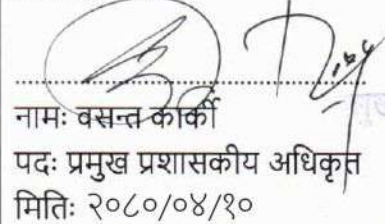 नामः वसन्त कार्की
पदः प्रमुख प्रशासकीय अधिकृत
मितिः २०८०/०४/१०